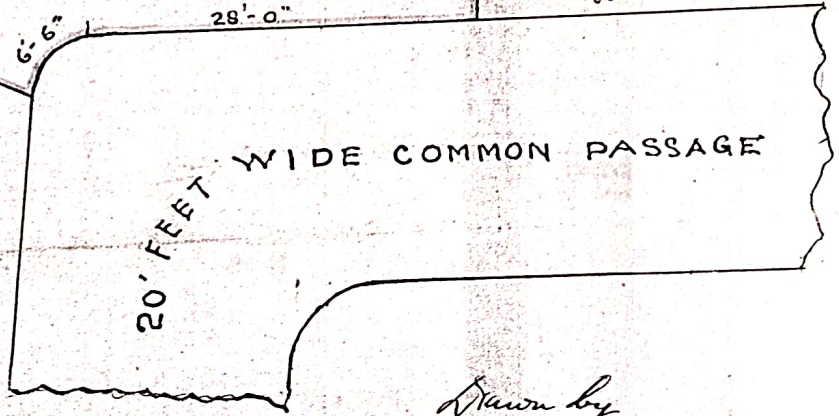 6'-6"
28'-0"
20' FEET WIDE COMMON PASSAGE
Drawn by